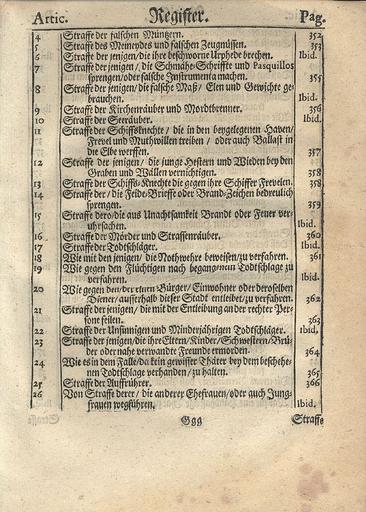 Artic. Register. Pag.
4 Straffe der falschen Müntzern. 352
5 Straffe des Meineydes und falschen Zeugnüssen. 353
6 Straffe der jenigen / die ihre beschworne Urphede brechen. Ibid.
7 Straffe der jenigen / die Schmähe-Schriffte und Pasquillos
sprengen/oder falsche Instrumenta machen. 355
8 Straffe der jenigen/ die falsche Maß/ Elen und Gewichte ge-
brauchen. Ibid.
9 Straffe der Kirchenräuber und Mordbrenner. 356
10 Straffe der Seeräuber. Ibid.
11 Straffe der Schiffsknechte / die in den beygelegenen Haven/
Frevel und Muthwillen treiben / oder auch Ballast in
die Elbe werffen. 357
12 Straffe der jenigen / die junge Hestern und Wieden bey den
Graben und Wällen vernichtigen. 358
13 Straffe der Schiffs-Knechte die gegen ihre Schiffer Freveln. 358
14 Straffe der/ die Feide-Brieffe oder Brand-Zeichen bedreulich
sprengen. 359
15 Straffe dero/die aus Unachtsamkeit Brandt oder Feuer ver-
uhrsachen. Ibid.
16 Straffe der Mörder und Strassenräuber. 360
17 Straffe der Todtschläger. Ibid.
18 Wie mit den jenigen/ die Nothwehre beweisen/zu verfahren. 361
19 Wie gegen den Flüchtigen nach begangenem Todtschlage zu
verfahren. Ibid.
20 Wie gegen den/der einen Bürger/ Einwohner oder deroselben
Diener/ ausserhalb dieser Stadt entleibet/zu verfahren. 362
21 Straffe der jenigen/ die mit der Entleibung an der rechter Per-
sone feilen. 363
22 Straffe der Unsinnigen und Minderjährigen Todtschläger. Ibid.
23 Straffe der jenigen/die ihre Eltern/Kinder/Schwestern/Brü-
der oder nahe verwandte Freunde ermorden. 364
24 Wie es in dem Falle/da kein gewisser Thäter bey dem beschehe-
nen Todtschlage verhanden/zu halten. 365
25 Straffe der Auffrührer. 366
26 Von Straffe derer / die anderer Ehefrauen/oder auch Jung-
frauen wegführen. Ibid.
Ggg Straffe